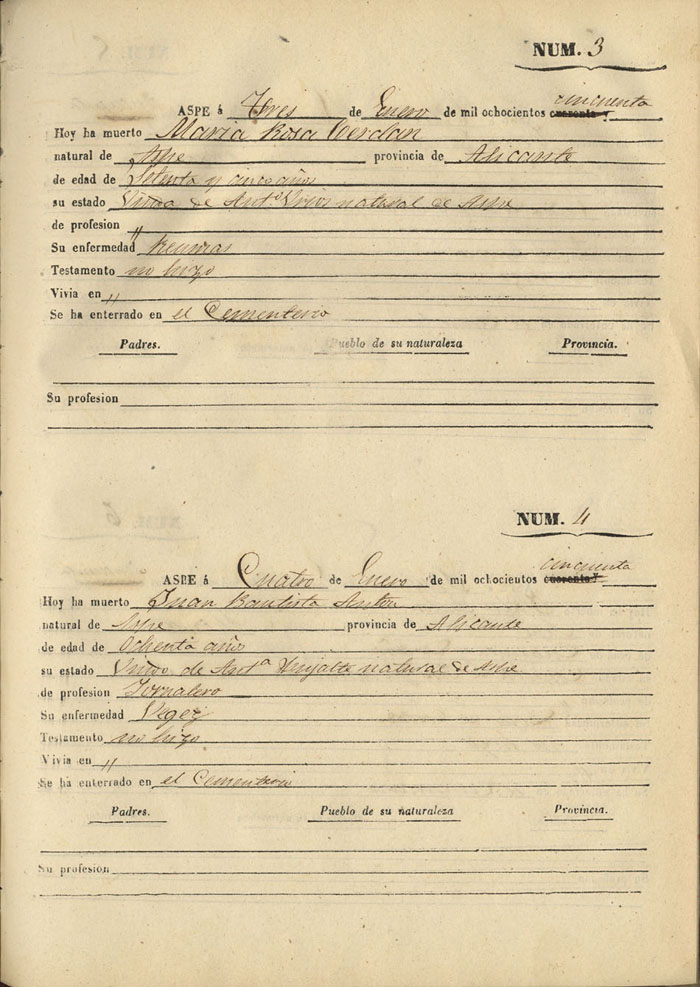 NUM. 3
cincuenta
ASPE á Tres de Enero de mil ochocientos cuarenta y
Hoy ha muerto Maria Rosa Cerdan
natural de Aspe provincia de Alicante
de edad de Setenta y cinco años
su estado Viuda de Antº natural de Aspe
de profesion "
Su enfermedad Reumas
Testamento no hizo
Vivia en "
Se ha enterrado en el Cementerio
Padres. Pueblo de su naturaleza Provincia.
Su profesion
NUM. 4
cincuenta
ASPE á Cuatro de Enero de mil ochocientos cuarenta y
Hoy ha muerto Juan Bautista Anton
natural de Aspe provincia de Alicante
de edad de Ochenta año
su estado Viudo de Antª natural de Aspe
de profesion Jornalero
Su enfermedad Vegez
Testamento no hizo
Vivia en "
Se ha enterrado en el Cementerio
Padres. Pueblo de su naturaleza Provincia.
Su profesion